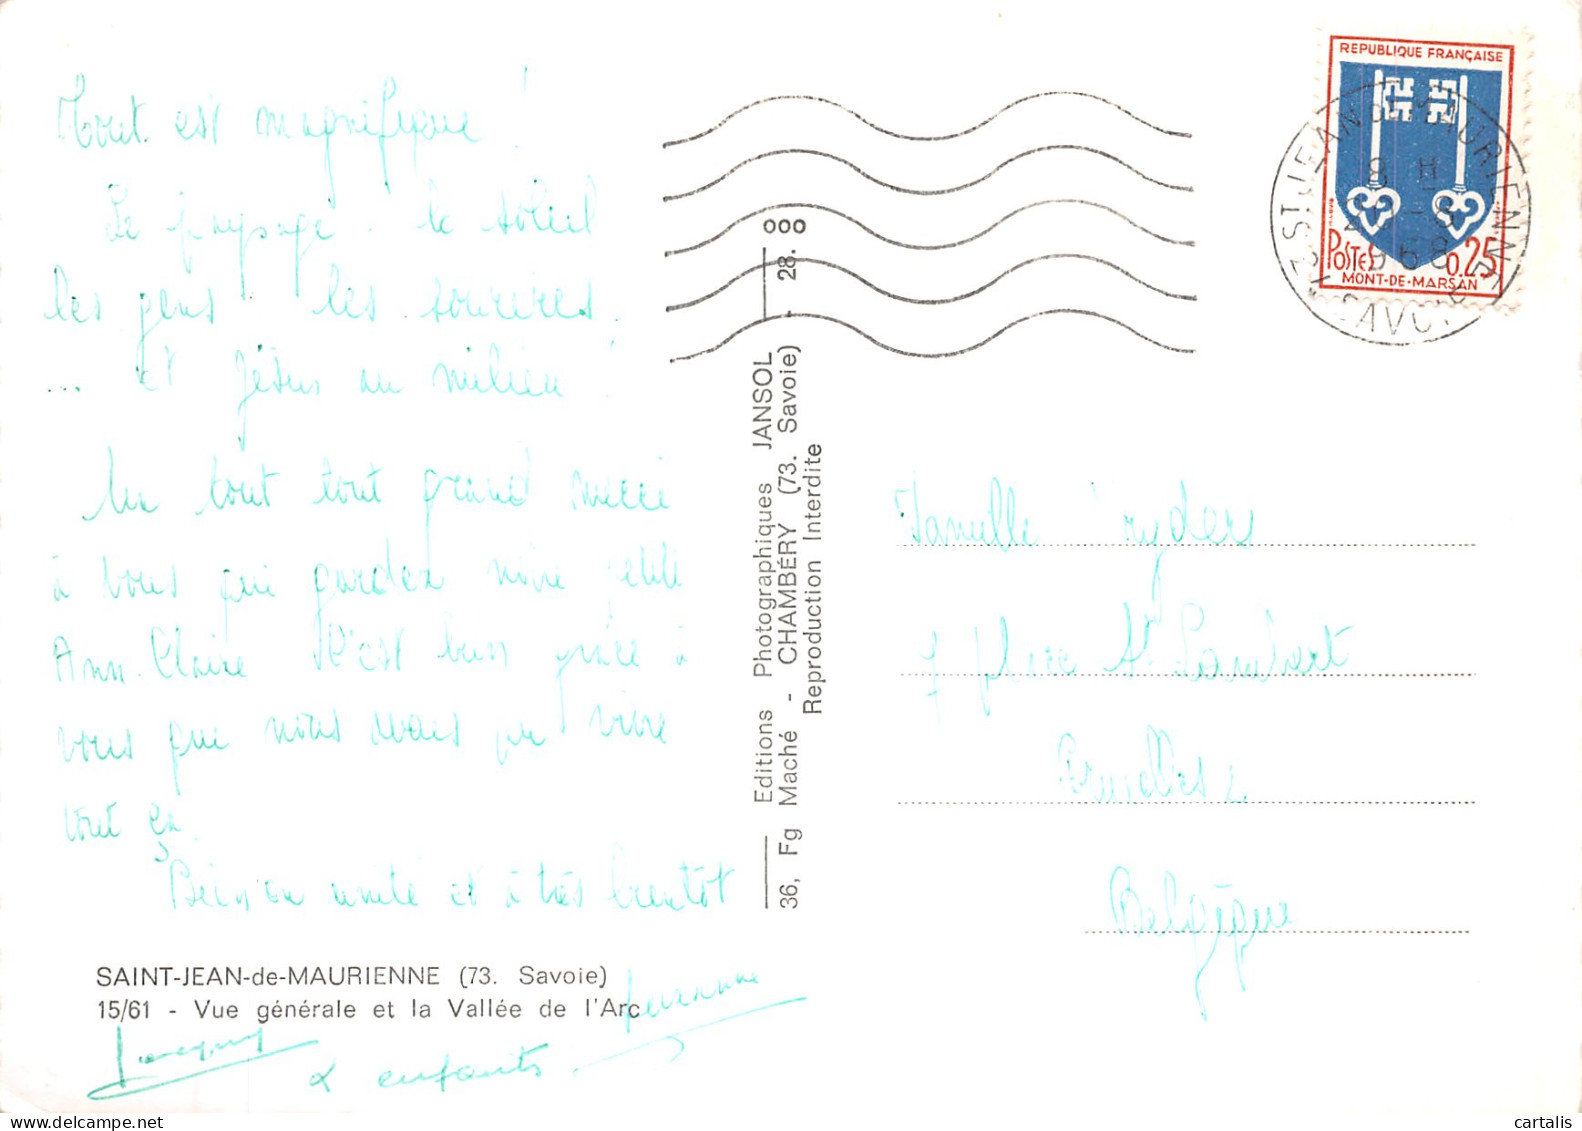 Tout est magnifique !
Le paysage. le soleil
les gens les sourires.
... et Jésus au milieu !
Un tout tout grand merci
à vous qui gardez notre petite
Ann. Claire C'est bien grâce à
vous que nous avons pu vivre
tout ça.
Bien en unité et à très bientôt
SAINT-JEAN-de-MAURIENNE (73. Savoie)
15/61 - Vue générale et la Vallée de l'Arc
Jacques
& enfants.
Editions Photographiques JANSOL
36, Fg Maché - CHAMBÉRY (73. Savoie) - 28.000
Reproduction Interdite
REPUBLIQUE FRANÇAISE
POSTES 0.25
MONT-DE-MARSAN
ST JEAN DE MAURIENNE
SAVOIE
Famille
7 place St Lambert
Bruxelles 2
Belgique
cartalis
www.delcampe.net